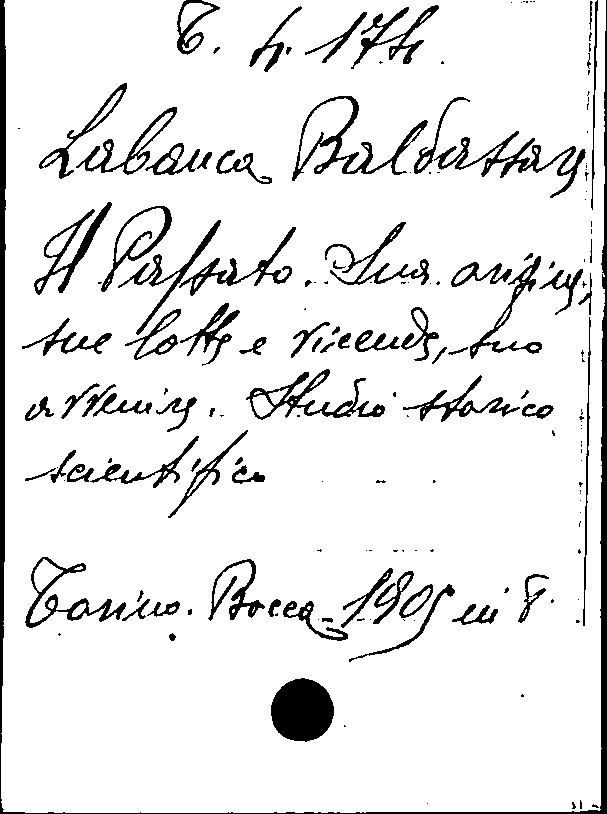 T. 4. 174
Labanca Baldassare
Il Passato. Sua origine,
sue lotte e vicende, suo
avvenire. Studio storico
scientifico
Torino. Bocca - 1905 in 8.